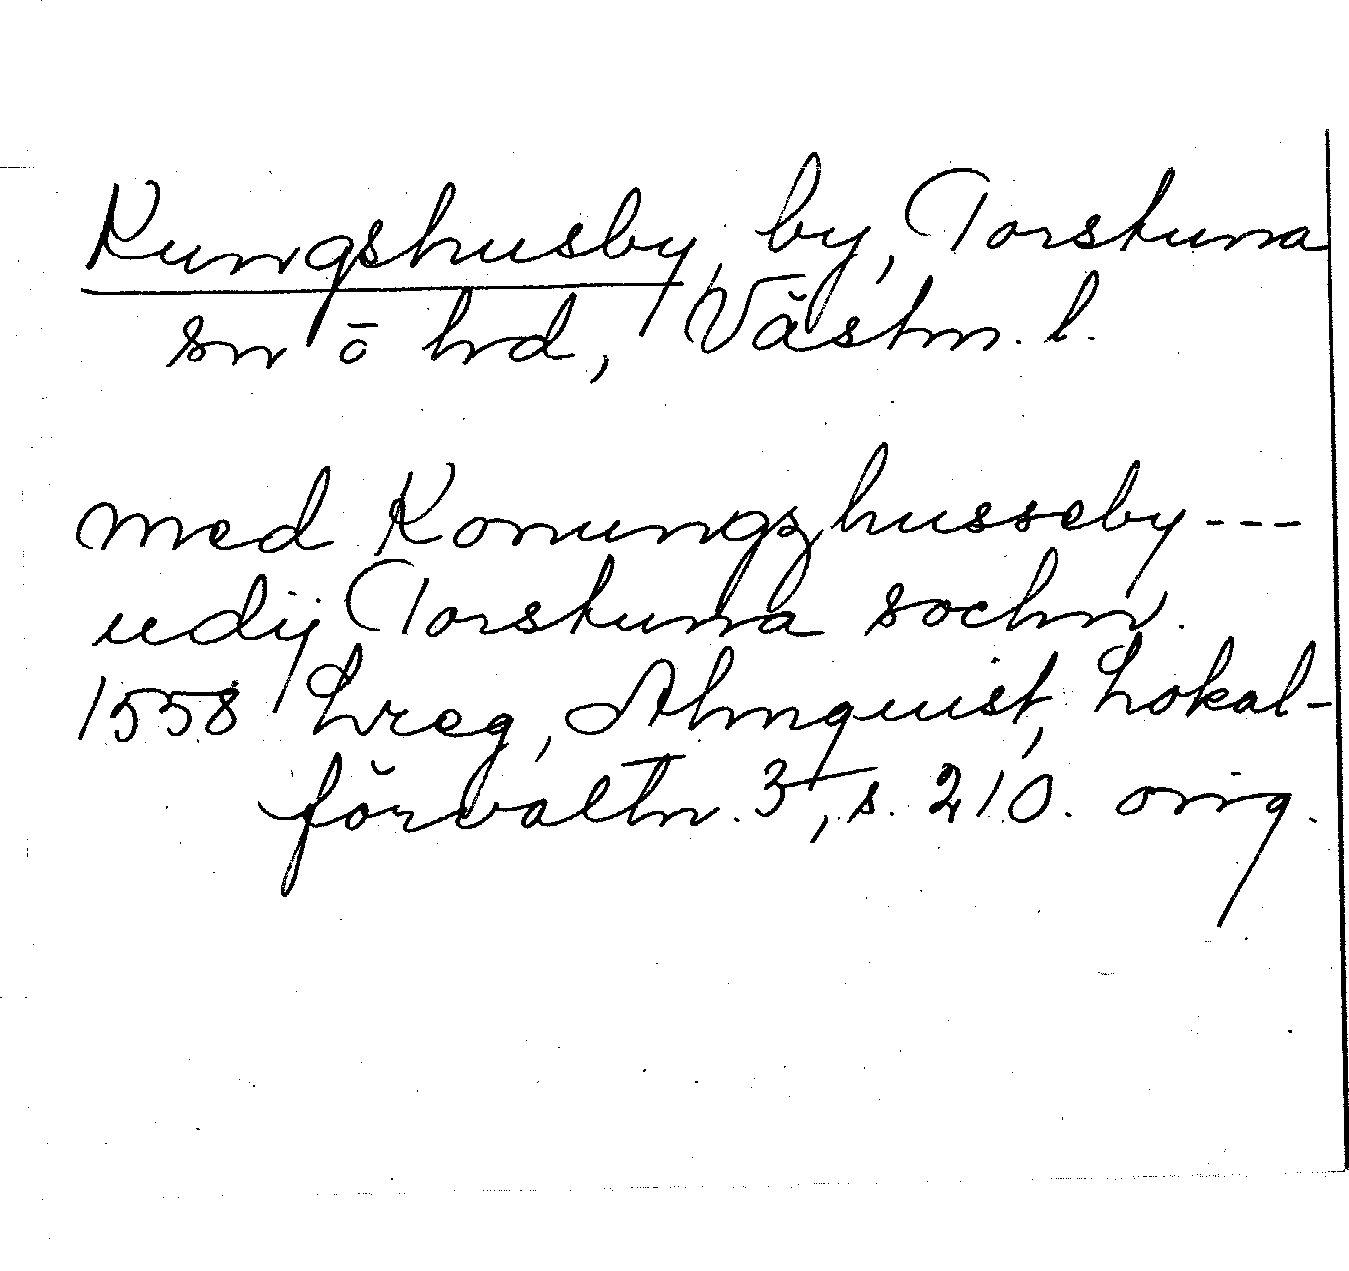 Kungshusby, by, Torstuna
sn ō hd, Västm. l.
med Konungzhusseby ---
udij Torstuna sochn.
1558 Lreg, Almquist, Lokal-
förvaltn. 3, s. 210. orig.